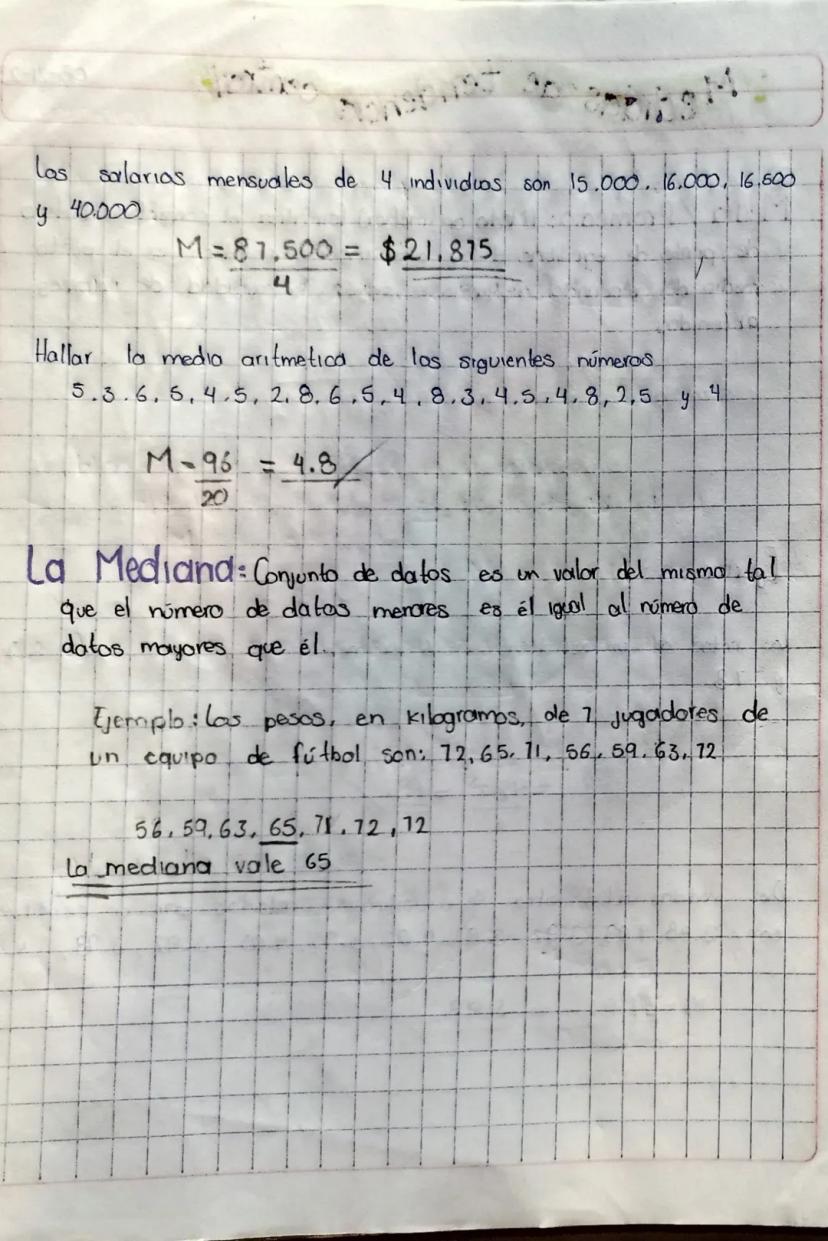 Los salarios mensuales de 4 individuos son 15.000, 16.000, 16.500
y 40.000
M = 87.500 = $ 21.875
4
Hallar la media aritmetica de los siguientes números
5.3.6.5,4.5,2.8.6.5.4.8.3.4.5.4.8,2,5 y 4
M = 96 = 4.8
20
La Mediana: Conjunto de datos es un valor del mismo tal
que el número de datos menores es él igual al número de
datos mayores que él.
Ejemplo: Los pesos, en kilogramos, de 7 jugadores de
un equipo de fútbol son: 72, 65, 71, 56, 59, 63, 72
56, 59, 63, 65, 71, 72, 72
La mediana vale 65